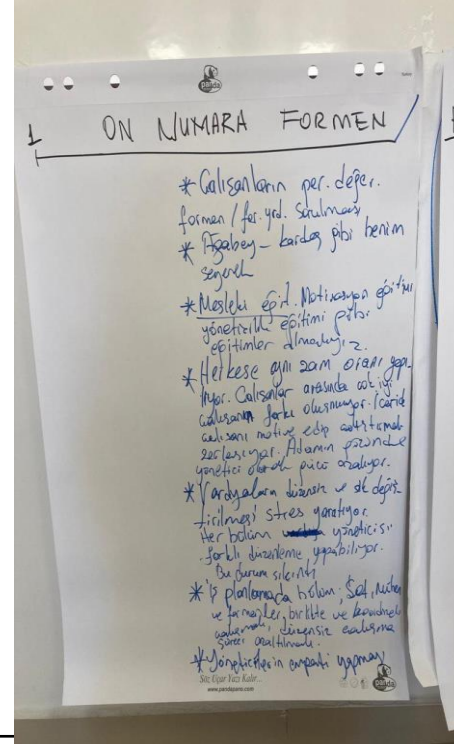 panda
1 ON NUMARA FORMEN
* Çalışanların per. değer.
formen / for. yrd. sorulması
* Ağabey - kardeş gibi benim
* Mesleki eğit. Motivasyon eğitimi
yöneticilik eğitimi gibi
eğitimler almalıyız.
* Herkese aynı zam oranı yapı-
lıyor. Çalışanlar arasında çok iyi
çalışanın farkı oluşmuyor.
çalışanı motive edip çalıştırmak
zorlaşıyor. Adamın gözünde
yönetici olarak gücü azalıyor.
* Vardiyaların düzensiz ve sık değiş-
tirilmesi stres yaratıyor.
Her bölüm yöneticisi
farklı düzenleme yapabiliyor.
Bu durum sıkıntı
* İş planlamada bölüm, Şef, Mühen
ve formenler, birlikte ve
düzensiz çalışma
süreci azaltılmalı.
* Yöneticilerin empati yapması
Söz Uçar Yazı Kalır...
www.pandapano.com
panda